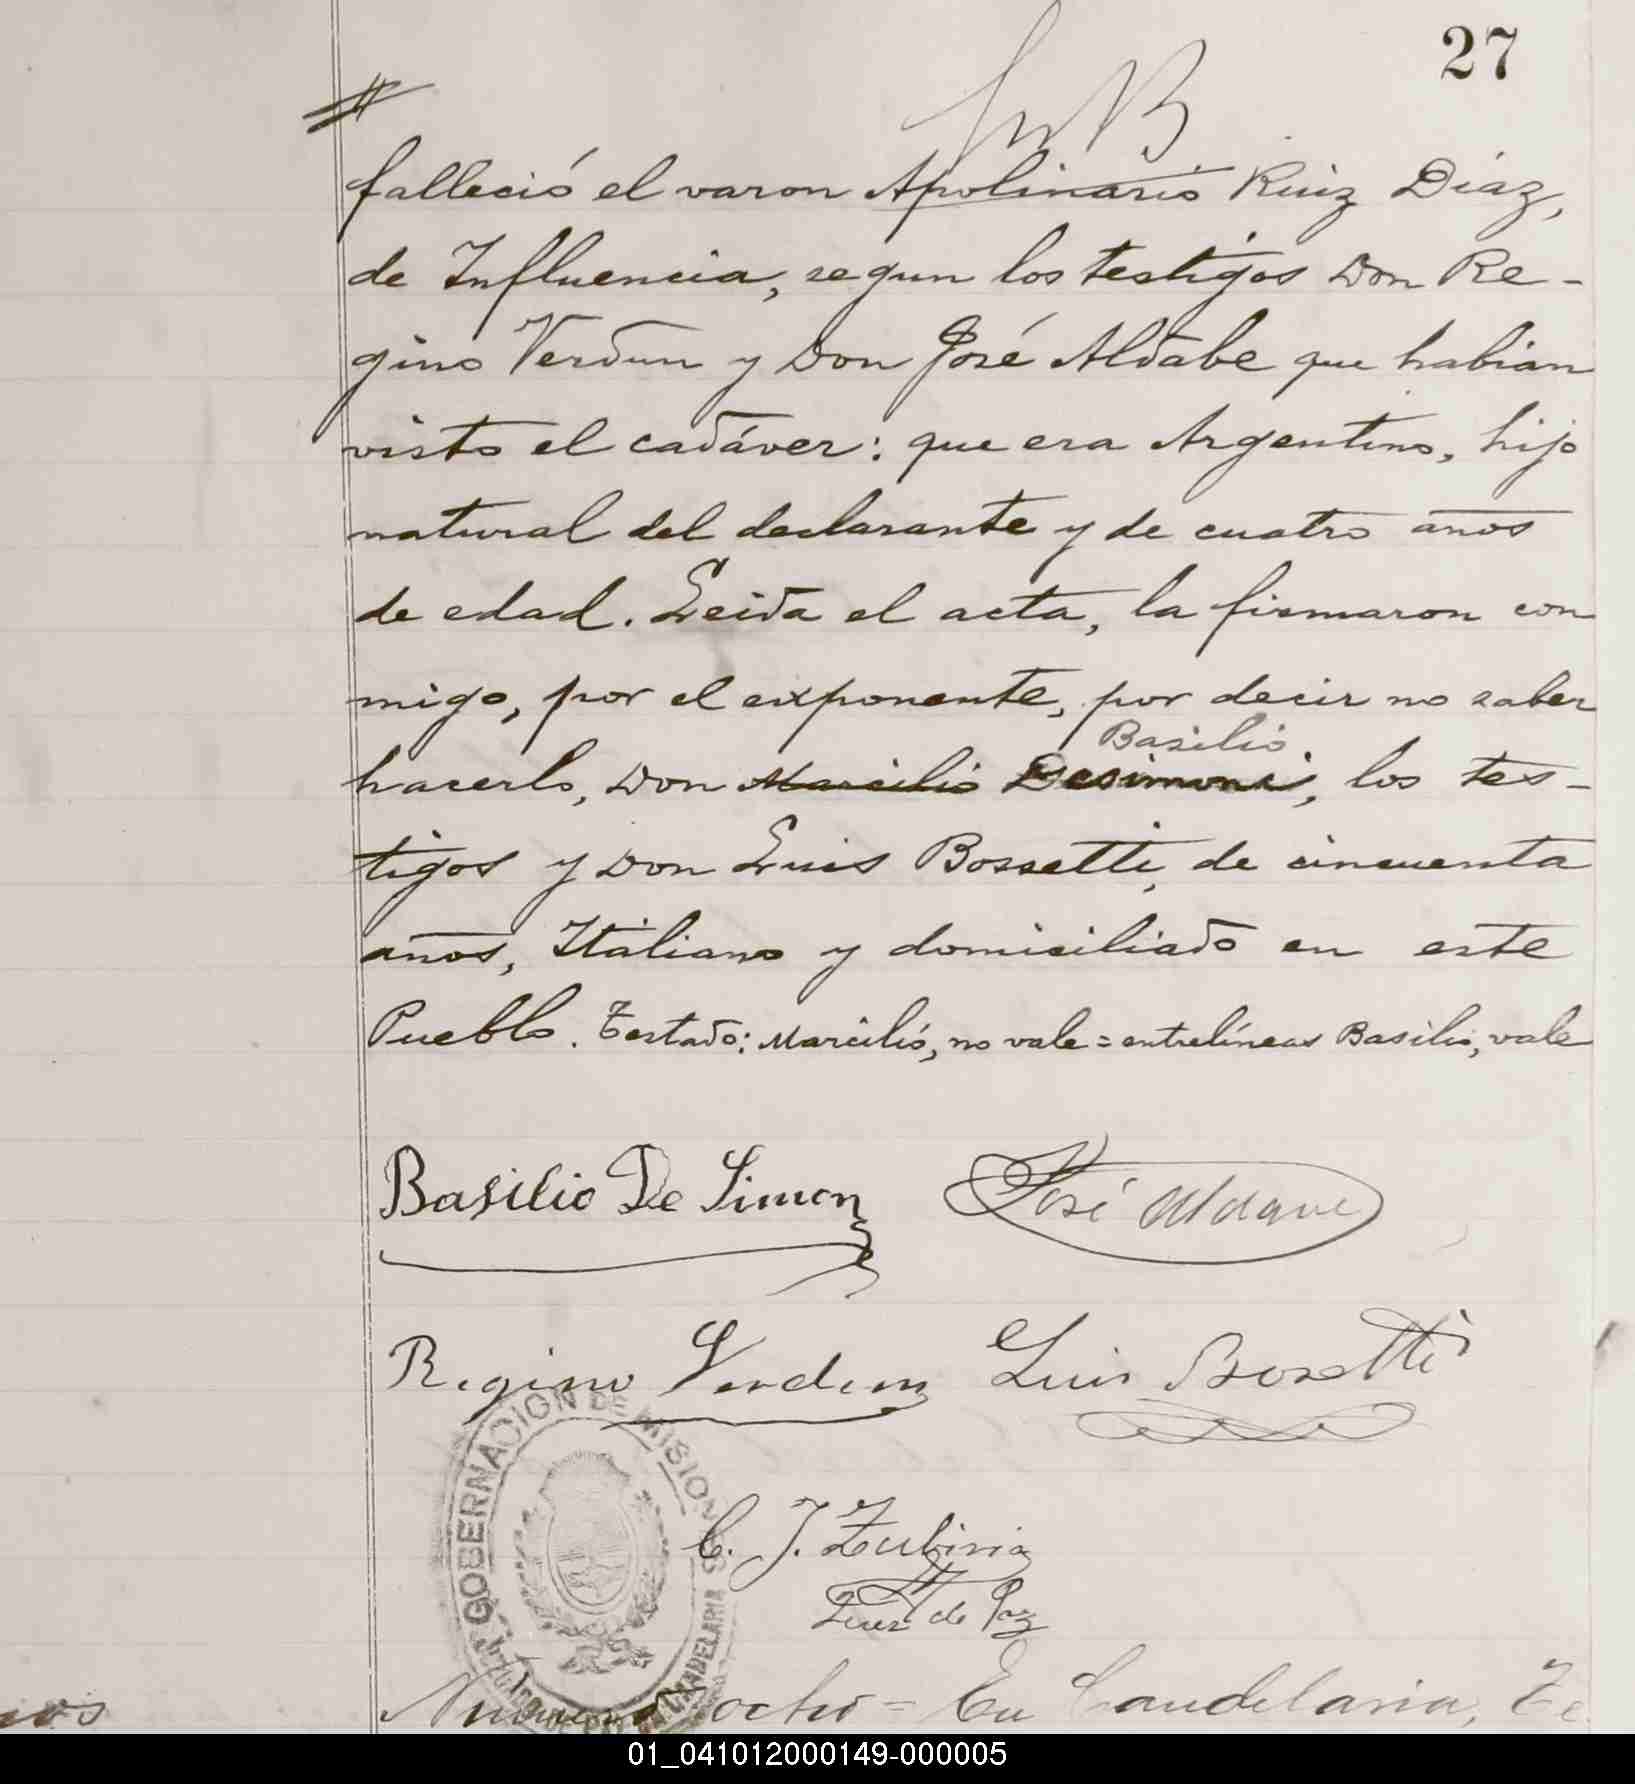 27
falleció el varon Apolinario Ruiz Diaz,
de Influencia, segun los testigos Don Re-
gino Verdun y Don José Aldabe que habian
visto el cadáver: que era Argentino, hijo
natural del declarante y de cuatro años
de edad. Leida el acta, la firmaron con
migo, por el exponente, por decir no saber
Basilio
hacerlo, Don Marcilio Desimoni, los tes-
tigos y Don Luis Bossetti, de cincuenta
años, Italiano y domiciliado en este
Pueblo. Testado: Marcilio, no vale = entrelíneas Basilio, vale
Basilio De Simon
José Aldave
Regino Verdun
Luis Bosetti
GOBERNACION DE MISIONES
CANDELARIA
C. J. Zubiria
Juez de Paz
Numero ocho = En Candelaria, Te
01_041012000149-000005